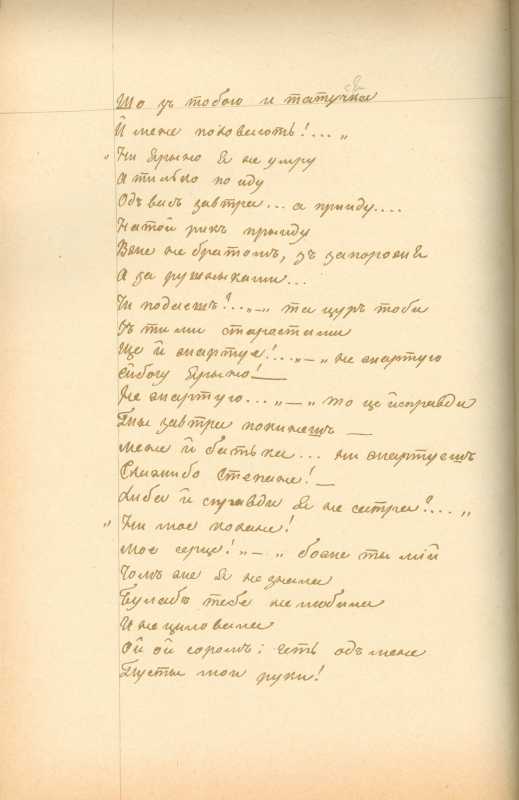 Що зъ тобою и татучка
Й мене поховають!... „
„ Ни Ярыно Я не умру
А тилько по иду
Одъ васъ завтра... а прииду....
На той рикъ прыиду
Вже не братомъ, зъ запорожя
А за рушныками...
Чи подаешъ?..„—„ та цуръ тоби
Зъ тими старостами
Ще й жартуе!...„—„ не жартую
Ейбогу Ярыно!—
Не жартую...„—„ то це й справди
Ты завтра покинешъ —
Мене й батька... ни жартуешъ
Скажибо Степане!—
Хиба й справди Я не сестра?... „
„ Ни мое кохане!
Мое серце! „—„ боже ты мій
Чомъ же Я не знала
Булабъ тебе не любила
И не циловала
Ой ой соромъ: геть одъ мене
Пусты мои руки!